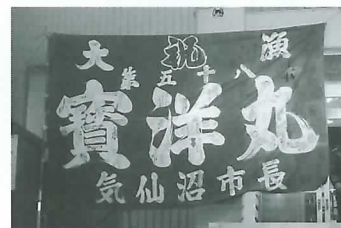 大 祝 漁
第五十八
寳洋丸
気仙沼市長